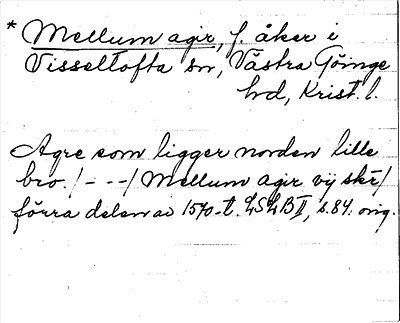 * Mellum agir, f. åker i
Visseltofta sn, Västra Göinge
hd, Krist. l.
Agre som ligger norden lille
bro. /- --/ Mellum agir vij skr/
förra delen av 1570-t. LSLB II, s. 84. orig.